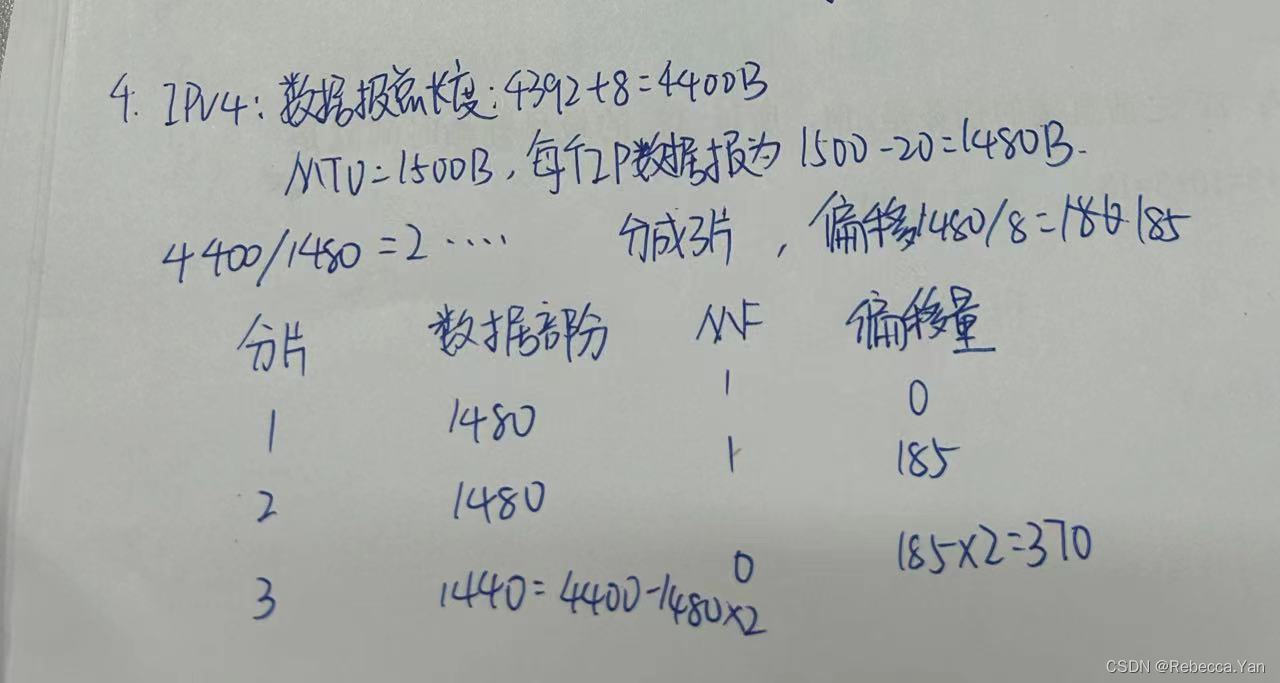 4. IPV4:数据报总长度:4392+8=4400B
MTU=1500B,每个IP数据报为 1500-20=1480B.
4400/1480=2···· 分成3片,偏移1480/8=185
分片 数据部分 MF 偏移量
1 1480 1 0
2 1480 1 185
3 1440=4400-1480×2 0 185×2=370
CSDN @Rebecca.Yan